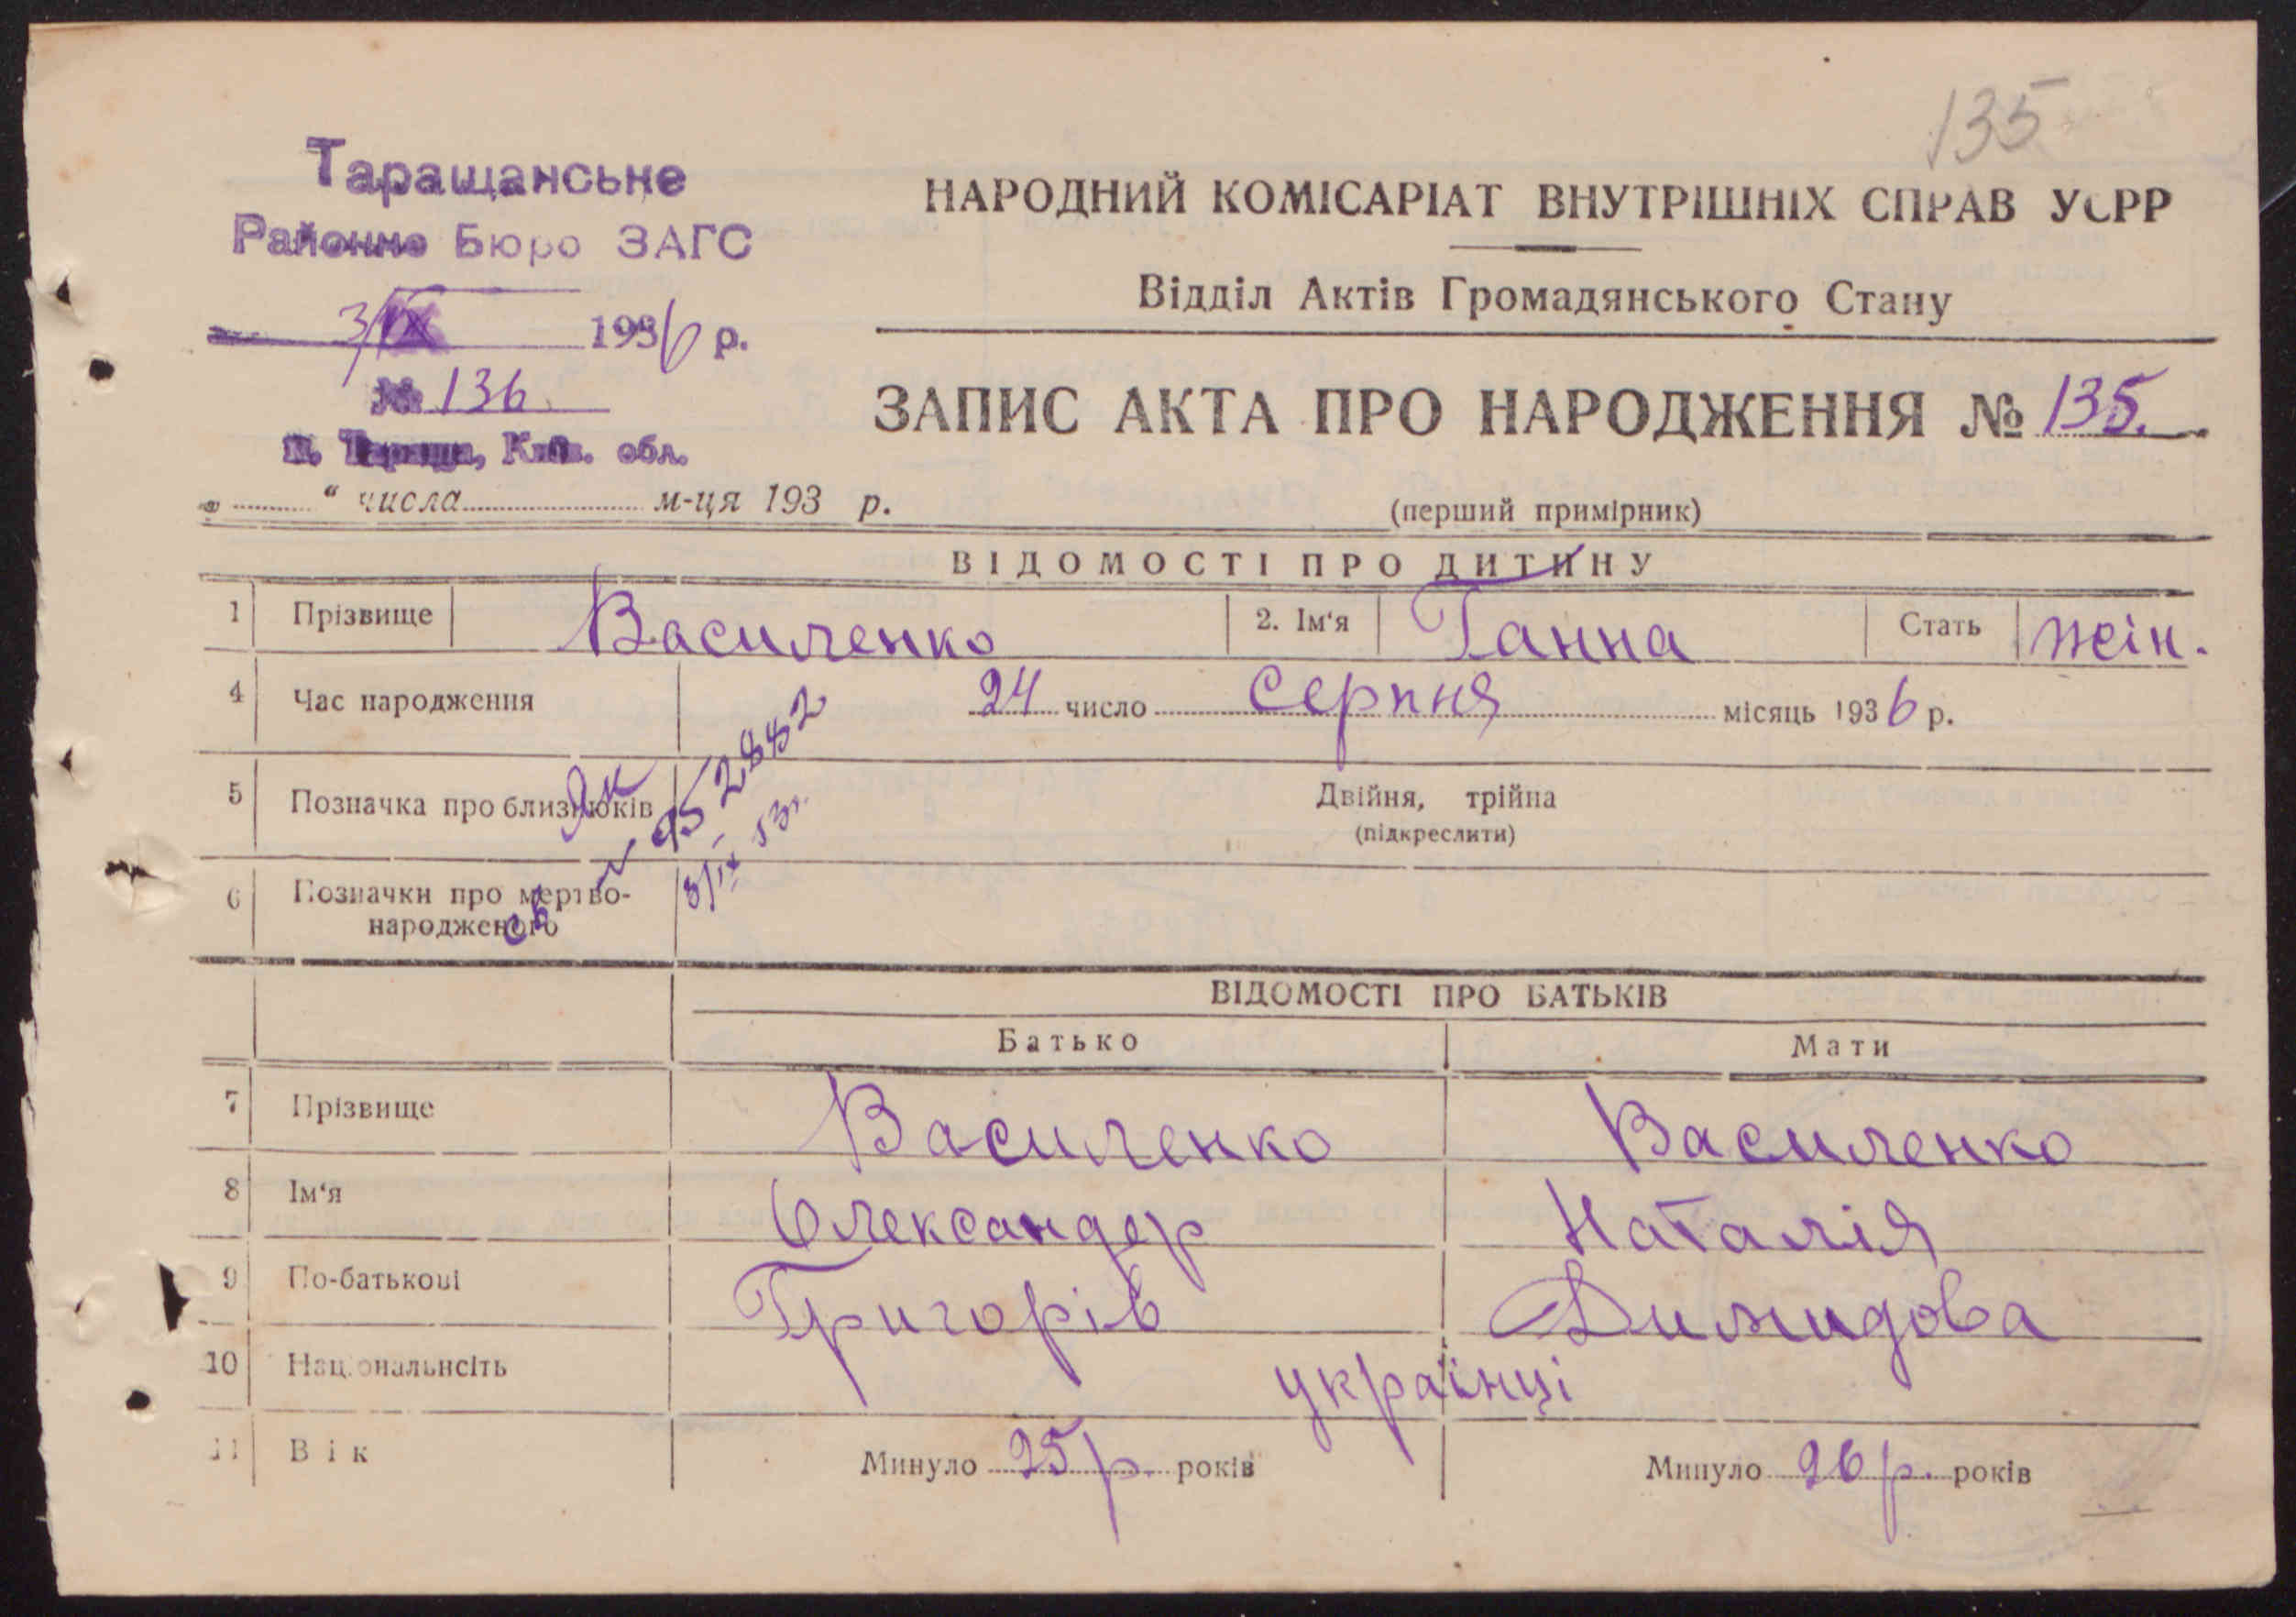 135
Таращанське
Районне Бюро ЗАГС
3/IX 1936 р.
№ 136
м. Тараща, Київ. обл.
„ “ числа м-ця 193 р.
НАРОДНИЙ КОМІСАРІАТ ВНУТРІШНІХ СПРАВ УСРР
Відділ Актів Громадянського Стану
ЗАПИС АКТА ПРО НАРОДЖЕННЯ № 135.
(перший примірник)
ВІДОМОСТІ ПРО ДИТИНУ
1 Прізвище Василенко 2. Ім'я Ганна Стать жін.
4 Час народження 24 число серпня місяць 1936 р.
5 Позначка про близнюків Двійня, трійна
(підкреслити)
ЯК
№ 952882
8/IX 53 г.
6 Позначки про мертво-
народженого
ВІДОМОСТІ ПРО БАТЬКІВ
Батько Мати
7 Прізвище Василенко Василенко
8 Ім'я Олександер Наталія
9 По-батькові Григорів Димидова
10 Національнсіть українці
11 Вік Минуло 25 р. років Минуло 26 р. років